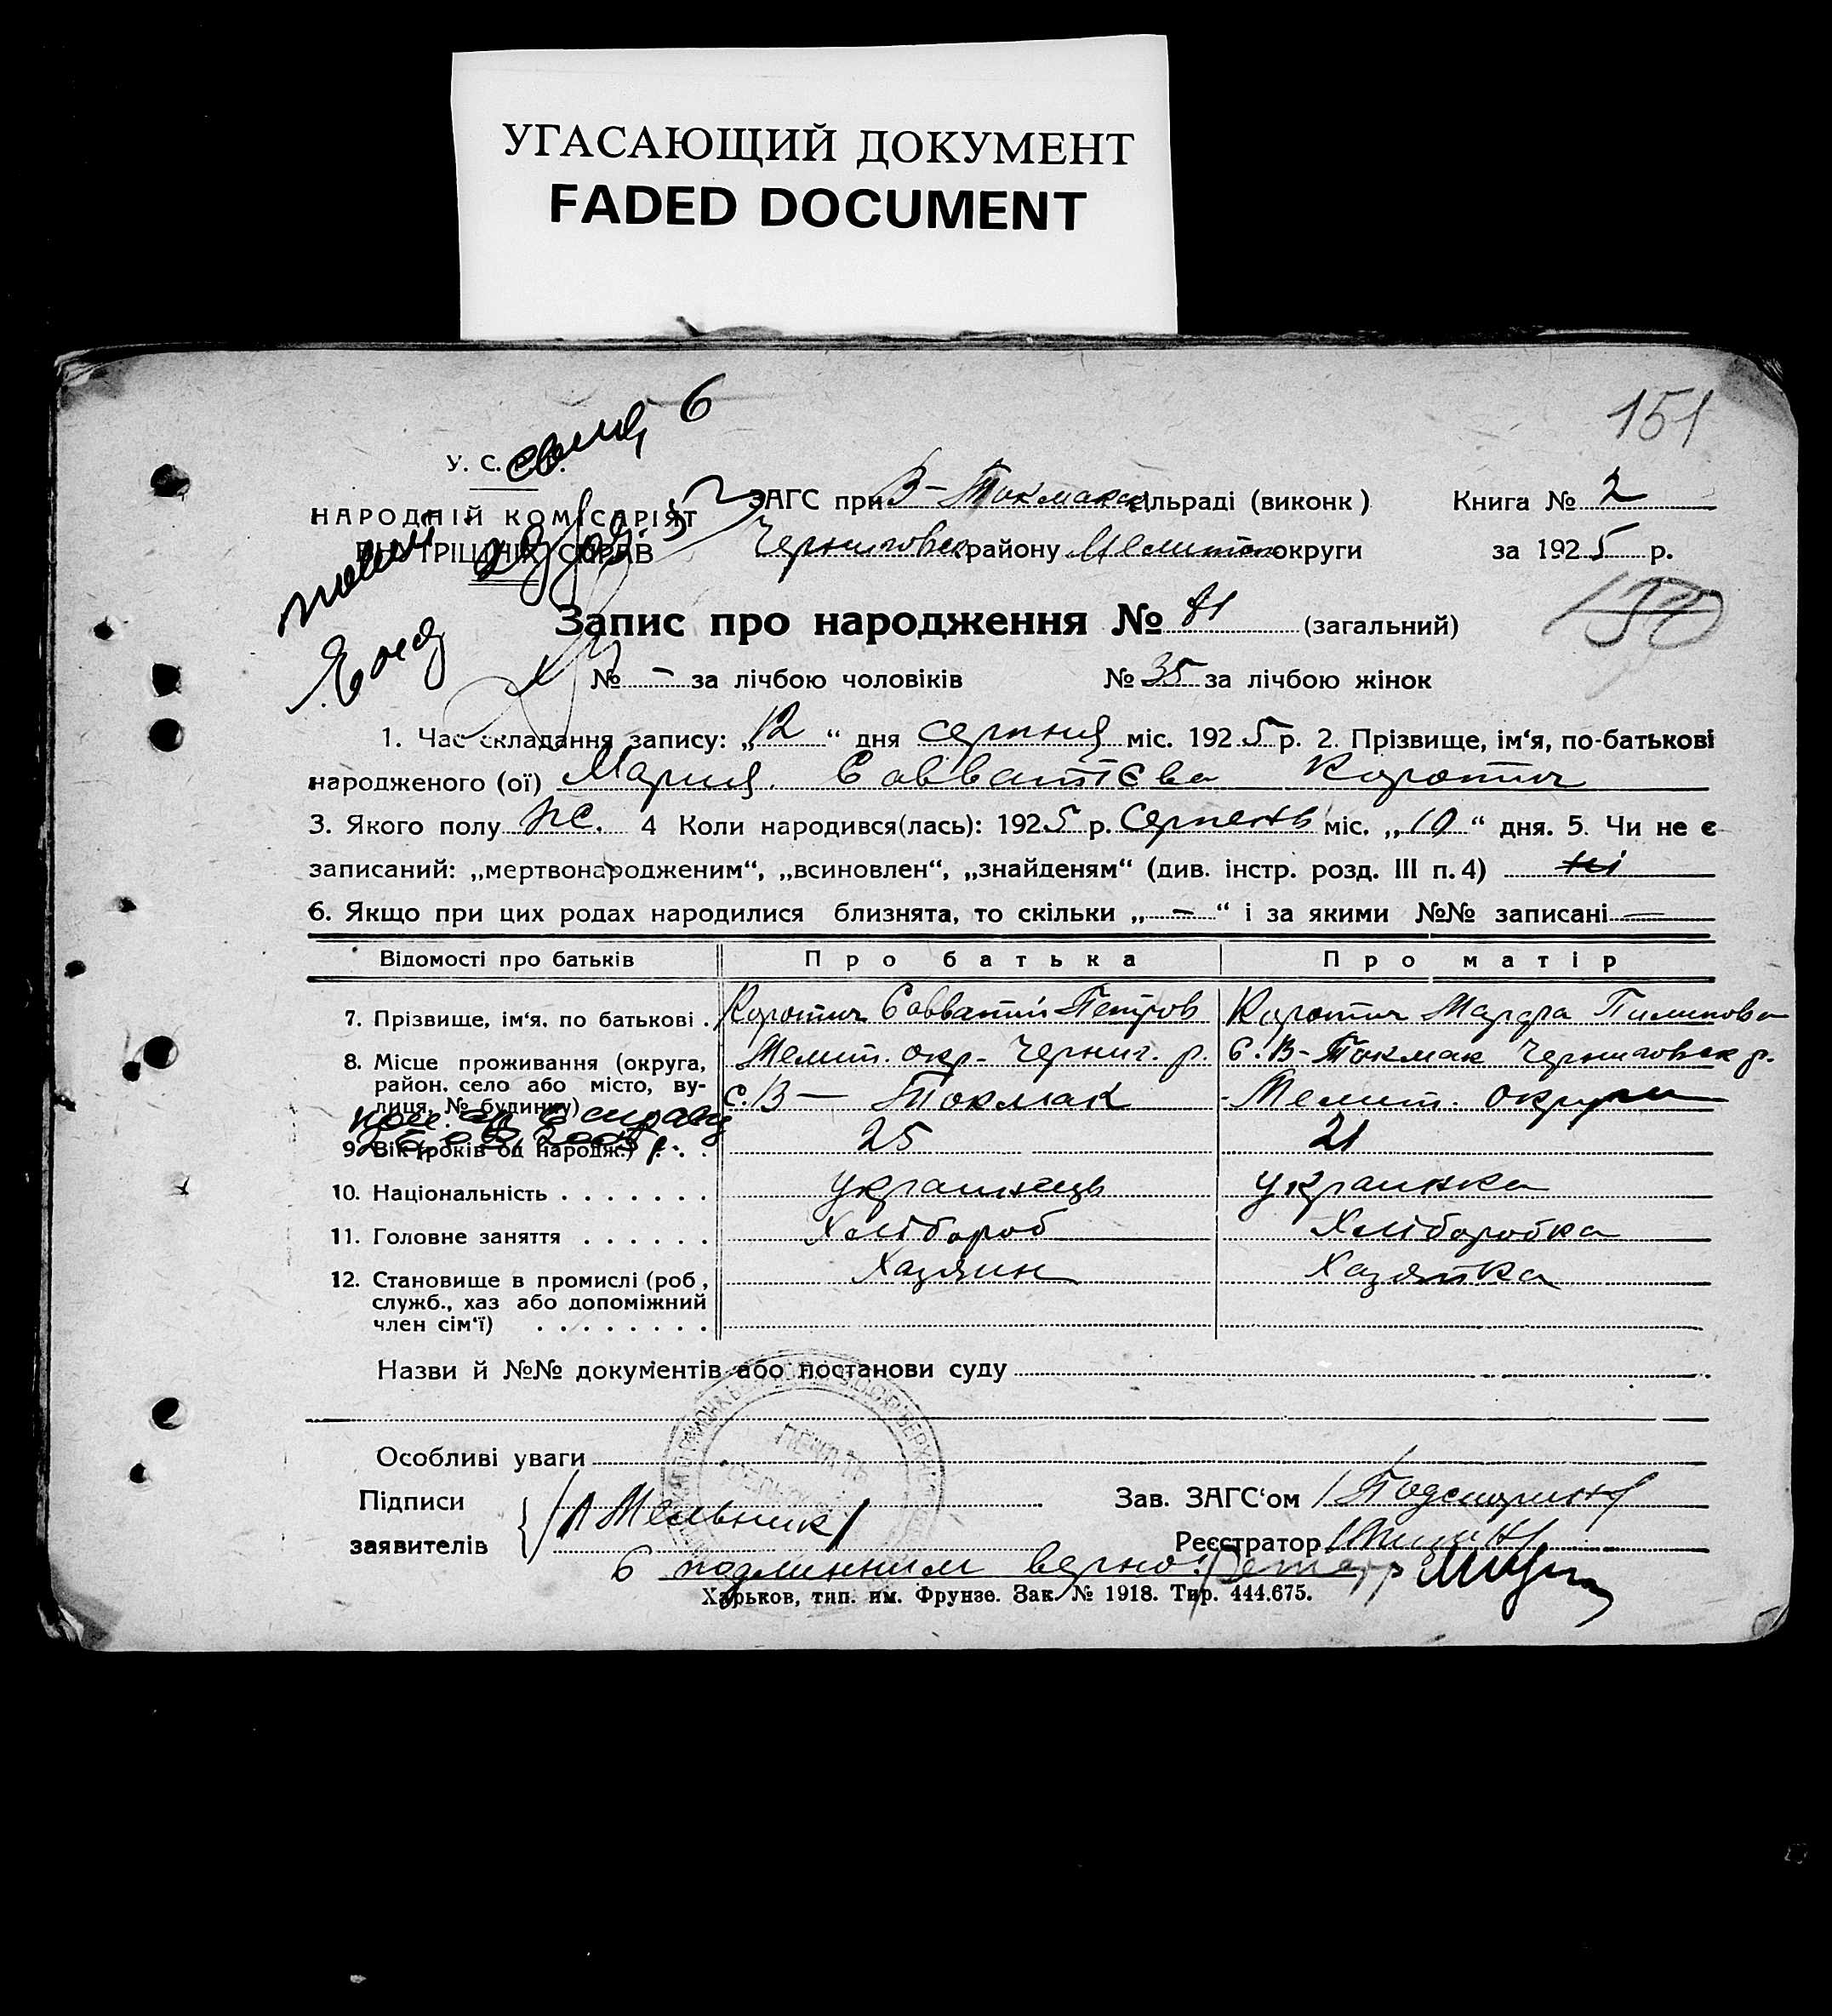 УГАСАЮЩИЙ ДОКУМЕНТ
FADED DOCUMENT
151
6
У. С. Р. Р.
НАРОДНІЙ КОМІСАРІЯТ
ВНУТРІШНІХ СПРАВ
ЗАГС при В-Токмакск сільраді (виконк)
Книга № 2
Черниговск району Мелитоп округи
за 1925 р.
Запис про народження № 81 (загальний)
150
№ - за лічбою чоловіків № 35 за лічбою жінок
1. Час складання запису: „12“ дня серпня міс. 1925 р. 2. Прізвище, ім‘я, по-батькові
народженого (ої) Мария Савватієва Коротич
3. Якого полу жс. 4 Коли народився(лась): 1925 р. Серпень міс. „10“ дня. 5. Чи не є
записаний: „мертвонародженим“, „всиновлен“, „знайденям“ (див. інстр. розд. III п. 4) ні
6. Якщо при цих родах народилися близнята, то скільки „-“ і за якими №№ записані —
Відомості про батьків Про батька Про матір
7. Прізвище, ім‘я. по батькові . Коротич Савватій Петров Коротич Марфа Пилипова
8. Місце проживання (округа, Мелит. окр. Черниг. р. С. В-Токмак Черниговск р.
район. село або місто, ву-
лиця, № будинку) с. В — Токмак Мелит. округи
9. Вік (років од народж.) . . . 25 21
10. Національність . . . . . . . украинець украинка
11. Головне заняття . . . . . . Хлібороб Хліборобка
12. Становище в промислі (роб, Хазяин Хазяйка
служб., хаз або допоміжний
член сім‘ї) . . . . . . . .
Назви й №№ документів або постанови суду
Особливі уваги
ПЕЧАТЬ
Підписи
заявителів
Мельник
Зав. ЗАГС‘ом
Реєстратор
С подлинним верно:
Харьков, тип. им. Фрунзе. Зак. № 1918. Тир. 444.675.